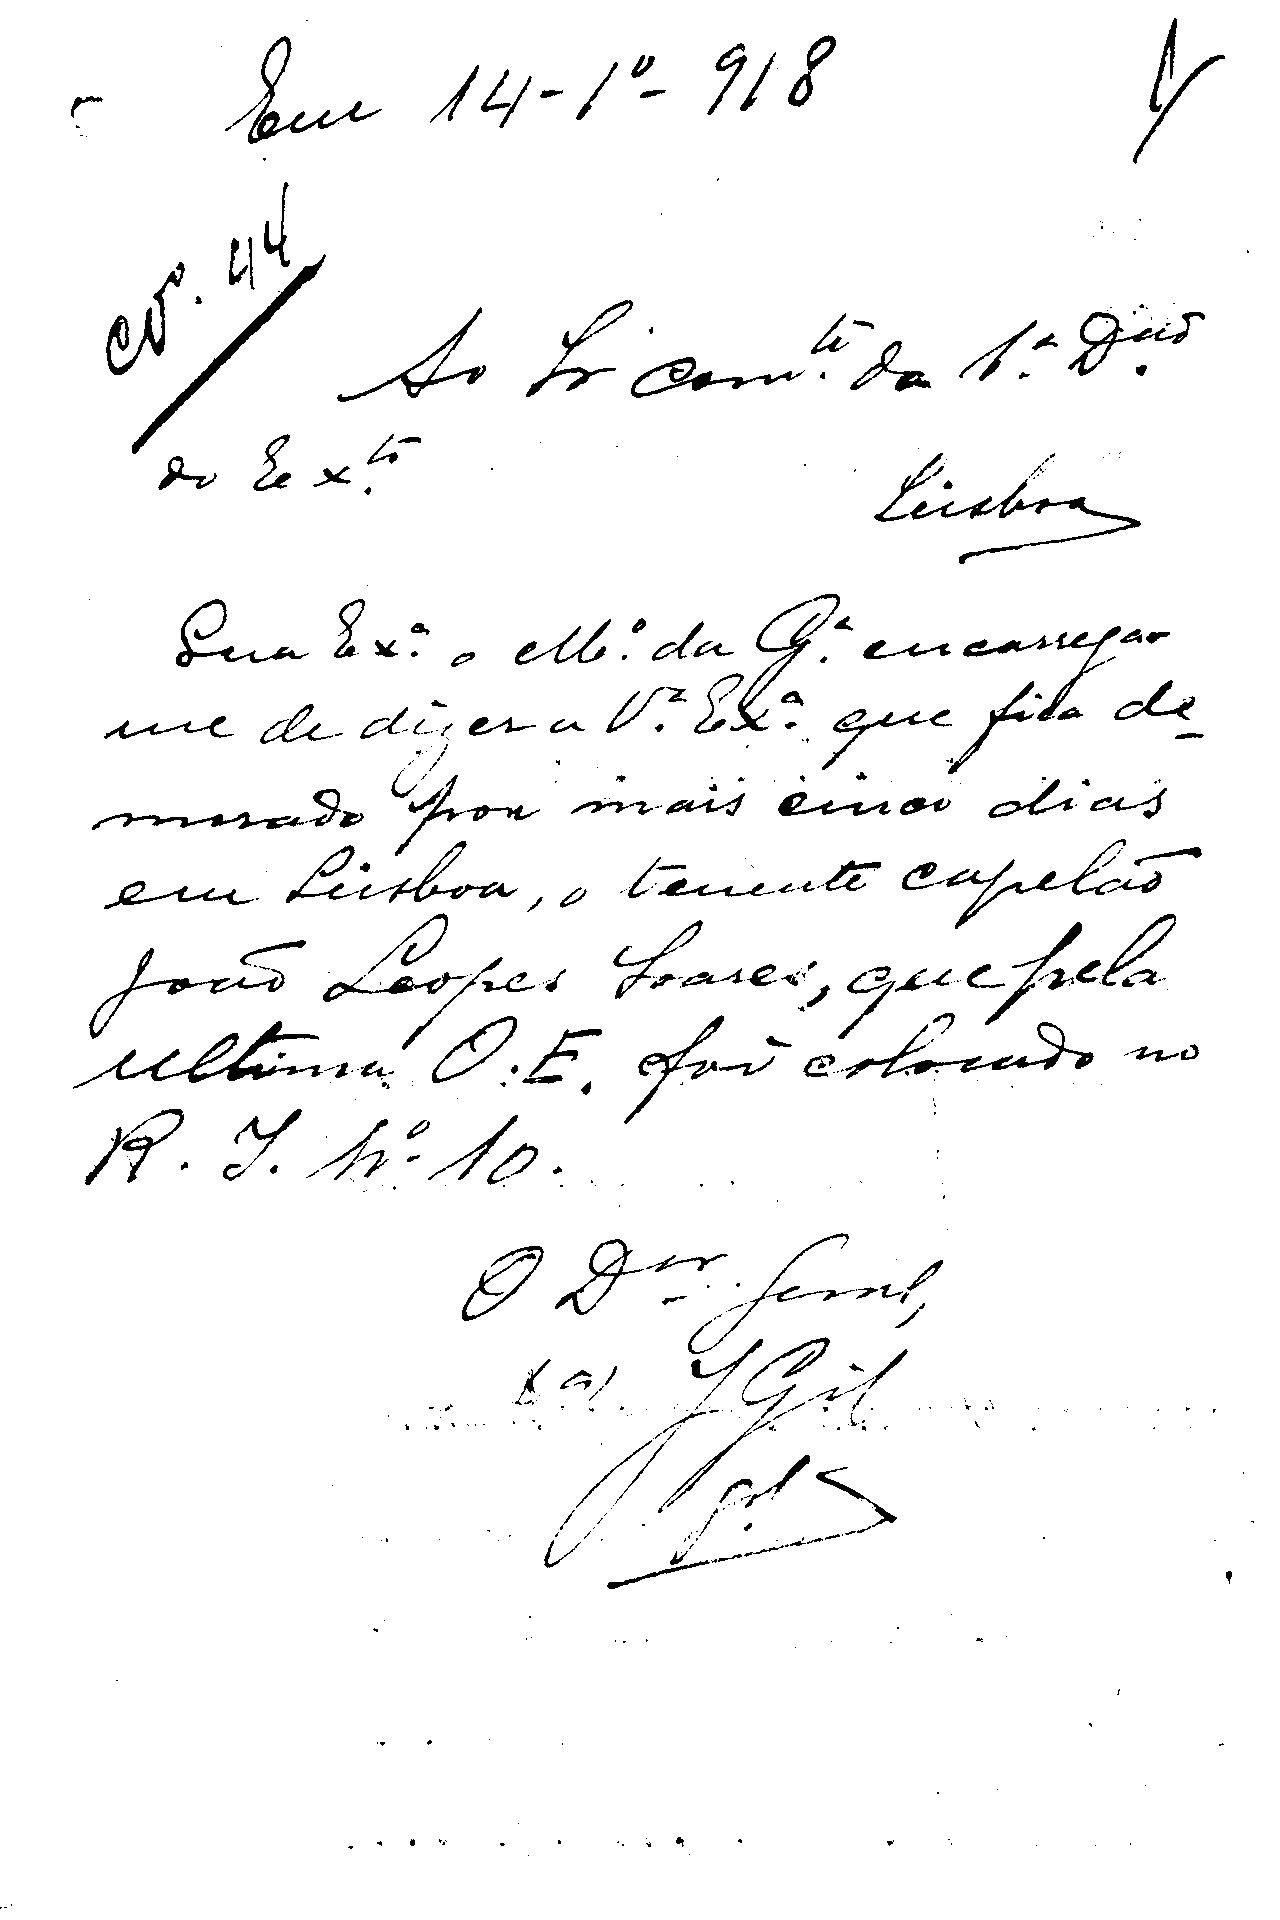 Em 14-1º-918
Nº. 44
Ao Sr com.te da 1.ª D.ão
do Ex.to
Lisboa
Sua Ex.ª o M.º da G.ª encarrega-
me de dizer a V.ª Ex.ª que fica de-
morado por mais cinco dias
em Lisboa, o tenente capelão
João Lopes Soares, que pela
ultima O.E. foi colocado no
R. I. Nº 10.
O D.or Geral,
(a) J Gil
g.al